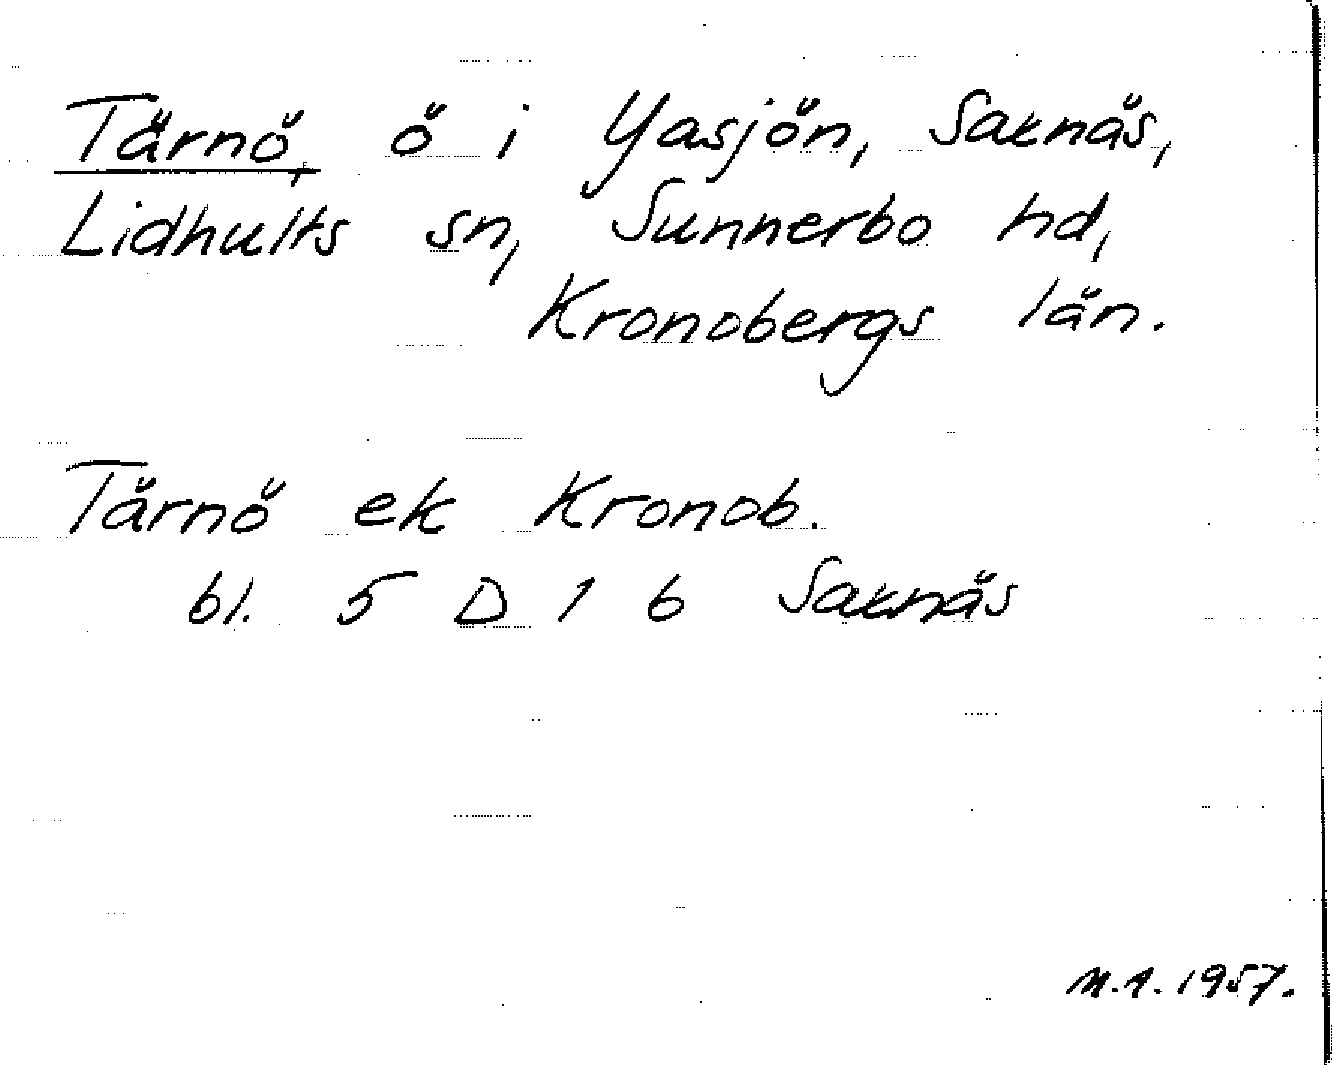 Tärnö, ö i Yasjön, Saknäs,
Lidhults sn, Sunnerbo hd,
Kronobergs län.
Tärnö ek Kronob.
bl. 5 D 1 b Saknäs
M.A. 1957.